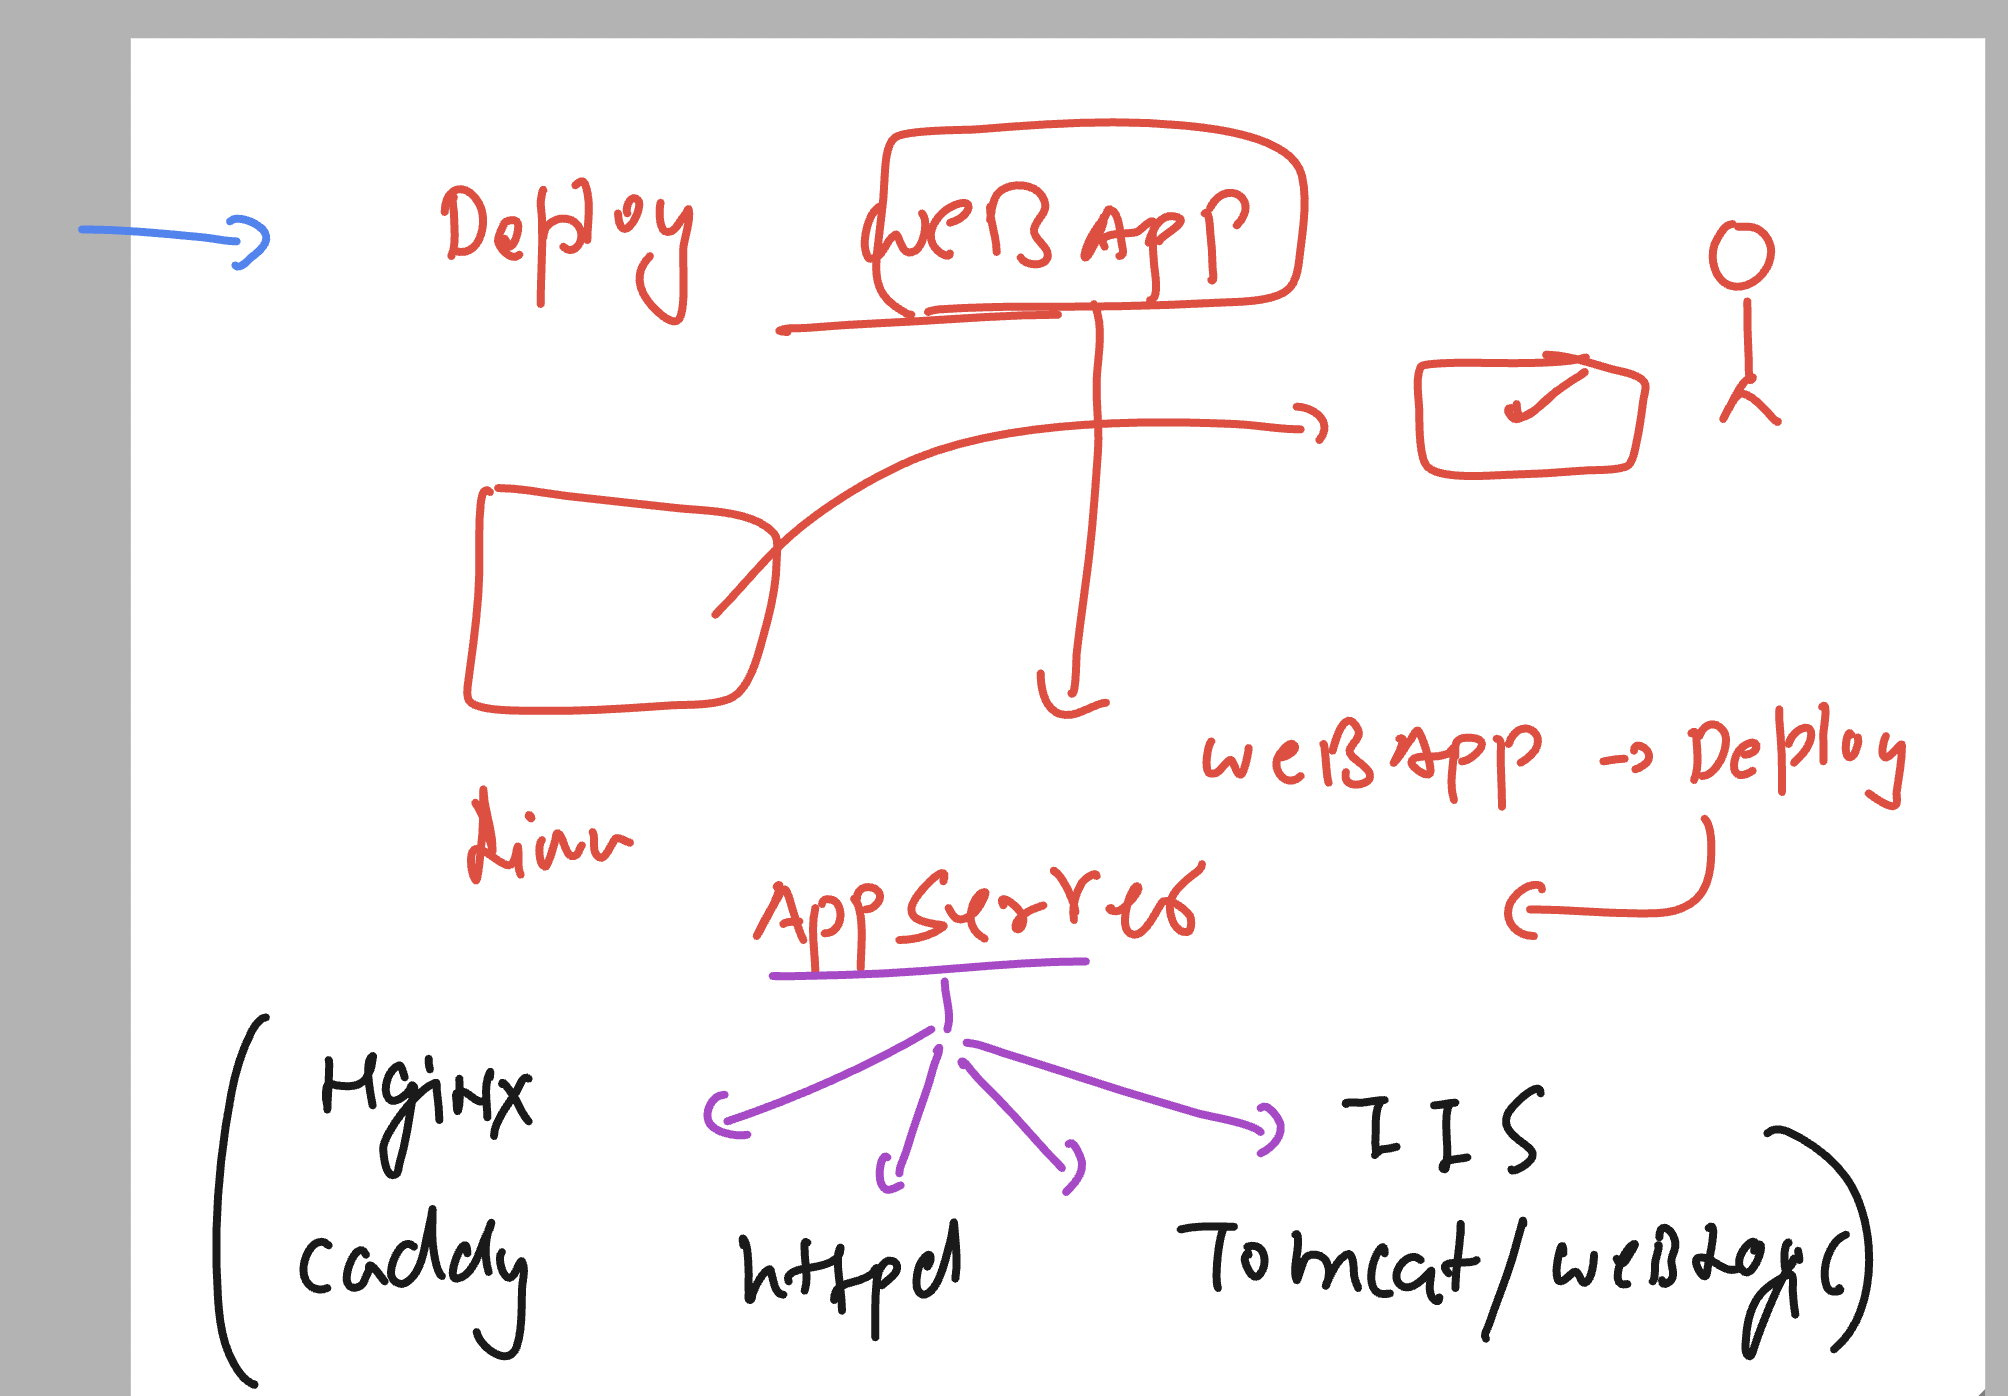 Deploy WeB App
weBApp → Deploy
App Server
Nginx
IIS
caddy httpd Tomcat/weBLogic